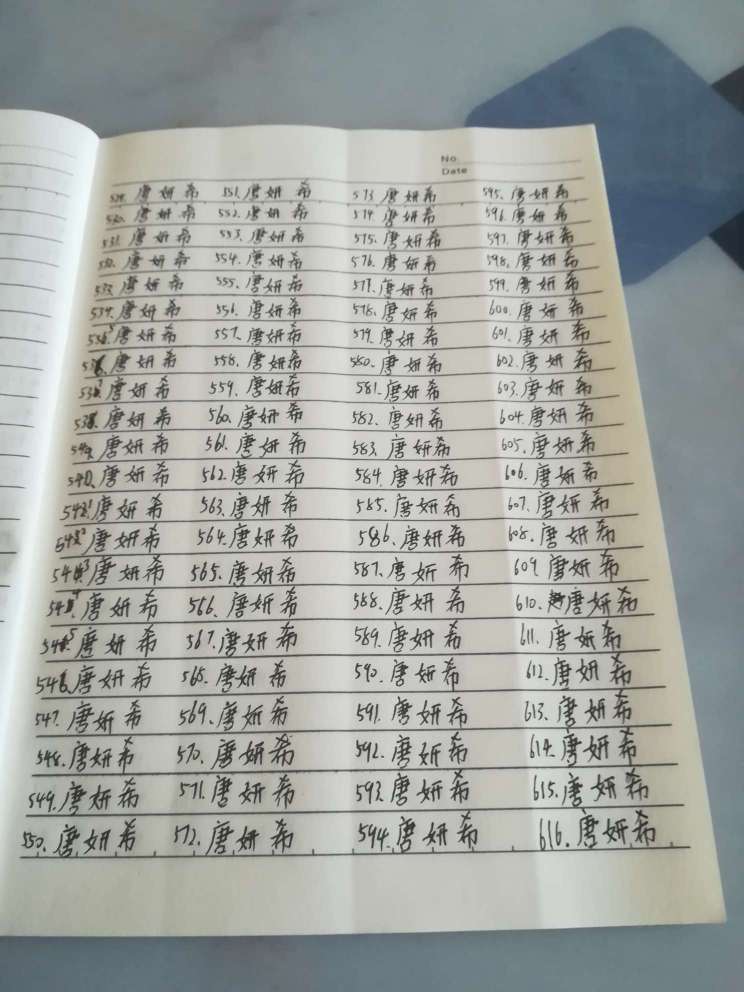 No.
Date
529. 唐妍希
530. 唐妍希
531. 唐妍希
532. 唐妍希
533. 唐妍希
534. 唐妍希
535. 唐妍希
536. 唐妍希
537. 唐妍希
538. 唐妍希
539. 唐妍希
540. 唐妍希
541. 唐妍希
542. 唐妍希
543. 唐妍希
544. 唐妍希
545. 唐妍希
546. 唐妍希
547. 唐妍希
548. 唐妍希
549. 唐妍希
550. 唐妍希
551. 唐妍希
552. 唐妍希
553. 唐妍希
554. 唐妍希
555. 唐妍希
556. 唐妍希
557. 唐妍希
558. 唐妍希
559. 唐妍希
560. 唐妍希
561. 唐妍希
562. 唐妍希
563. 唐妍希
564. 唐妍希
565. 唐妍希
566. 唐妍希
567. 唐妍希
568. 唐妍希
569. 唐妍希
570. 唐妍希
571. 唐妍希
572. 唐妍希
573. 唐妍希
574. 唐妍希
575. 唐妍希
576. 唐妍希
577. 唐妍希
578. 唐妍希
579. 唐妍希
580. 唐妍希
581. 唐妍希
582. 唐妍希
583. 唐妍希
584. 唐妍希
585. 唐妍希
586. 唐妍希
587. 唐妍希
588. 唐妍希
589. 唐妍希
590. 唐妍希
591. 唐妍希
592. 唐妍希
593. 唐妍希
594. 唐妍希
595. 唐妍希
596. 唐妍希
597. 唐妍希
598. 唐妍希
599. 唐妍希
600. 唐妍希
601. 唐妍希
602. 唐妍希
603. 唐妍希
604. 唐妍希
605. 唐妍希
606. 唐妍希
607. 唐妍希
608. 唐妍希
609. 唐妍希
610. 唐妍希
611. 唐妍希
612. 唐妍希
613. 唐妍希
614. 唐妍希
615. 唐妍希
616. 唐妍希